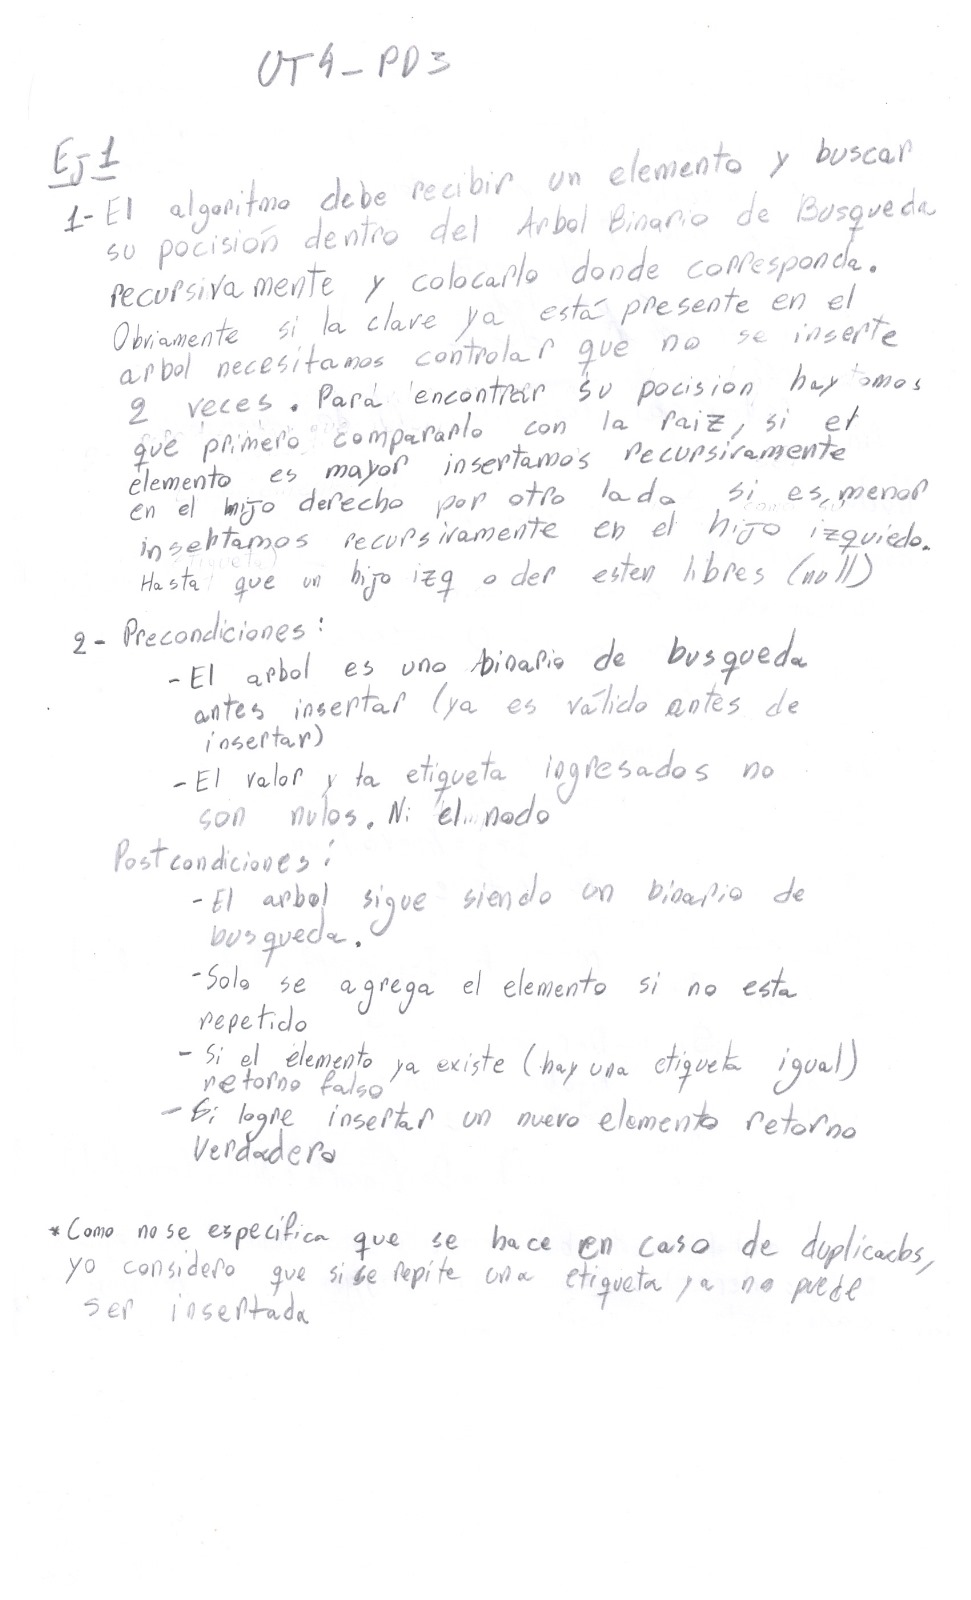 UT4-PD3
EJ1
1- El algoritmo debe recibir un elemento y buscar
su pocisión dentro del Arbol Binario de Busqueda
recursivamente y colocarlo donde corresponda.
Obviamente si la clave ya está presente en el
arbol necesitamos controlar que no se inserte
2 veces. Para encontrar su pocision
que primero compararlo con la raiz, si el
elemento es mayor insertamos recursivamente
en el hijo derecho por otro lado si es menor
insertamos recursivamente en el hijo izquiedo.
Hasta que un hijo izq o der esten libres (null)
2- Precondiciones:
- El arbol es uno binario de busqueda
antes insertar (ya es válido antes de
insertar)
- El valor y la etiqueta ingresados no
son nulos. Ni el nodo
Postcondiciones:
- El arbol sigue siendo un binario de
busqueda.
- Solo se agrega el elemento si no esta
repetido
- Si el elemento ya existe (hay una etiqueta igual)
retorno falso
- Si logre insertar un nuevo elemento retorno
Verdadero
* Como no se especifica que se hace en caso de duplicados,
yo considero que si se repite una etiqueta ya no puede
ser insertada